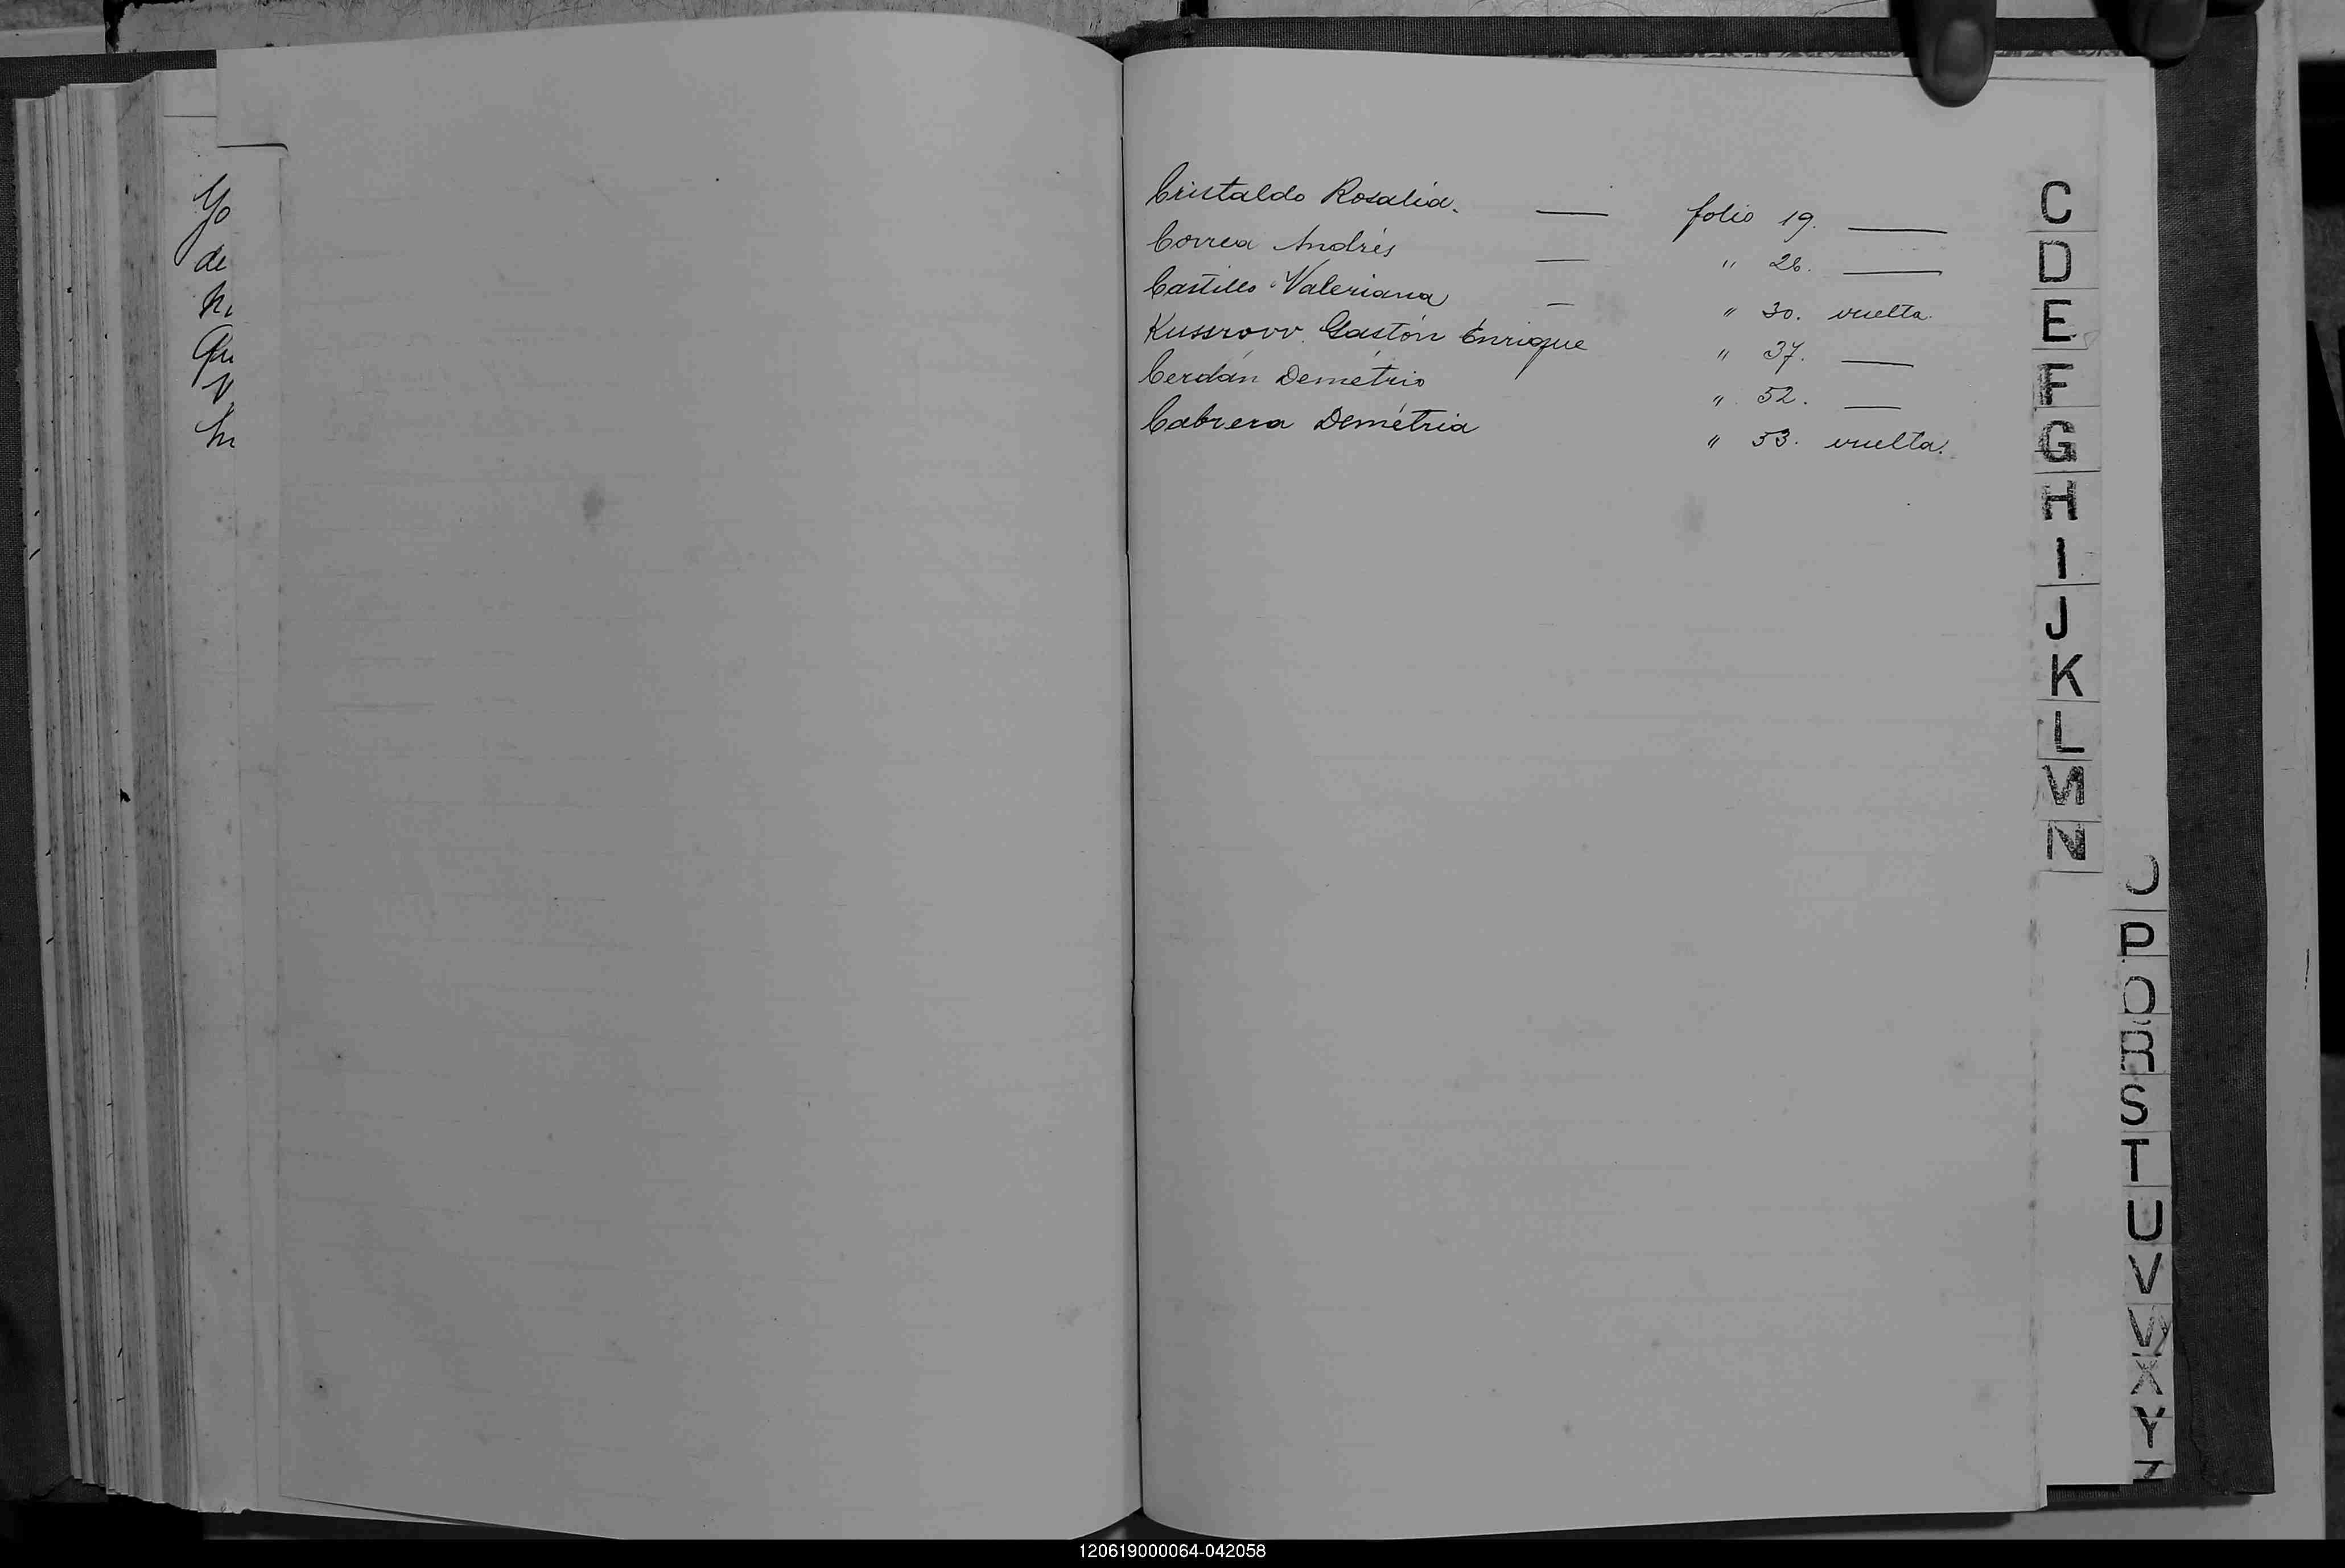 Yo
de
Cristaldo Rosalia. — folio 19. —
Correa Andrés — " 26. —
Castillo Valeriana — " 30. vuelta.
Kussrovv Gastón Enrique " 37. —
Cerdán Demétrio " 52. —
Cabrera Demétria " 53. vuelta.
C
D
E
F
G
H
I
J
K
L
M
N
O
P
Q
R
S
T
U
V
W
X
Y
Z
120619000064-042058